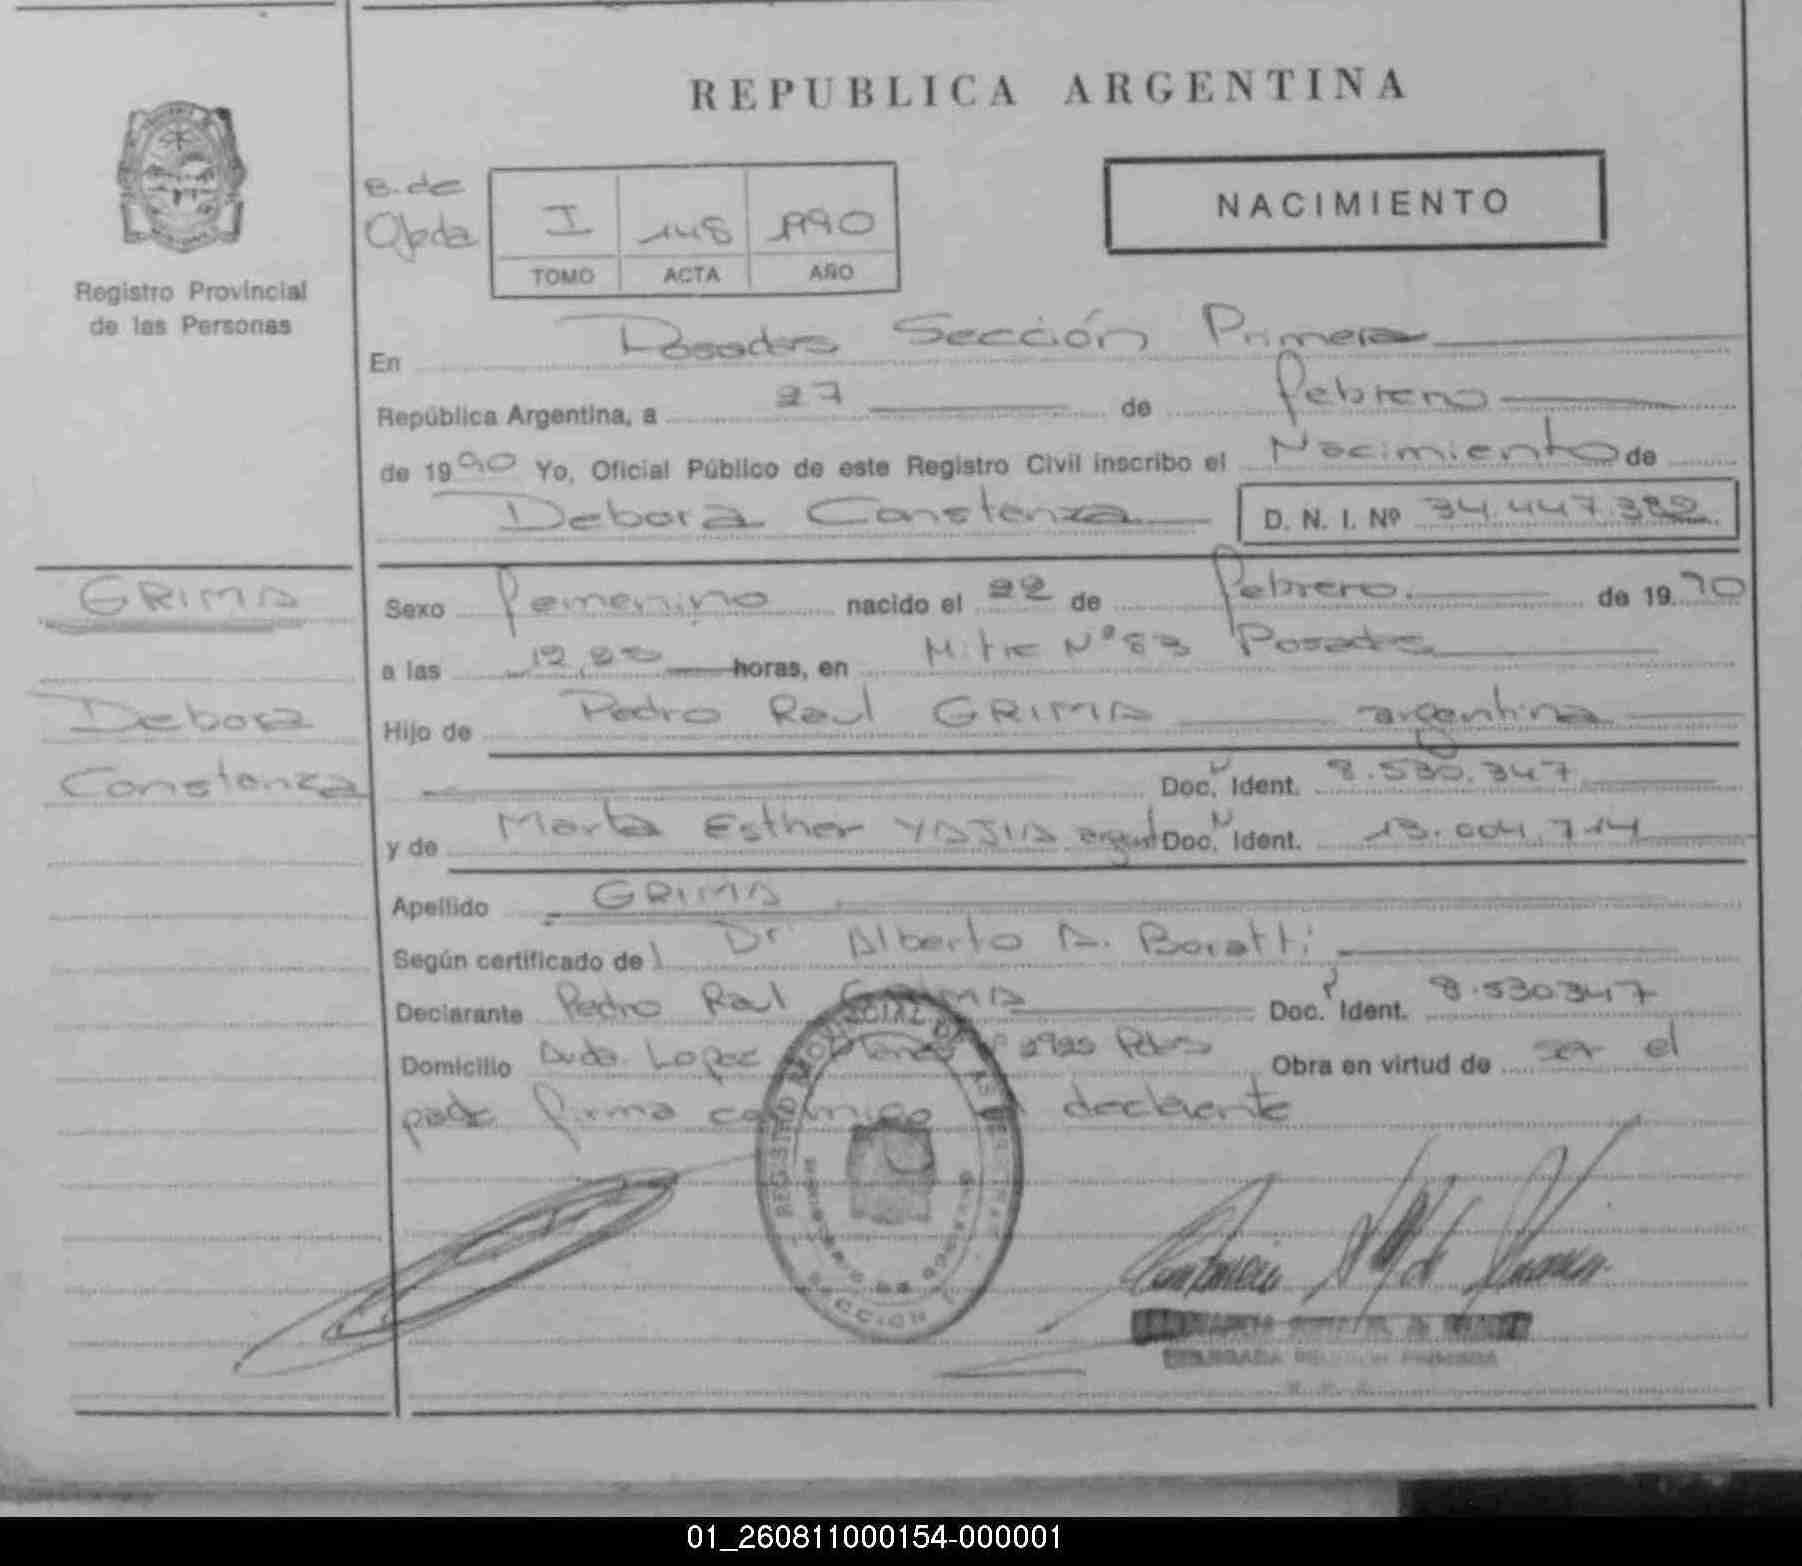 REPUBLICA ARGENTINA
NACIMIENTO
B. de
I 148 1990
TOMO ACTA AÑO
Registro Provincial
de las Personas
En Posadas Sección Primera
República Argentina, a 27 de febrero
de 1990 Yo, Oficial Público de este Registro Civil inscribo el Nacimiento de
Debora Constanza D. N. I. Nº 34.447.382
GRIMA
Sexo femenino nacido el 22 de febrero. de 19
a las horas, en Mitre Nº 83 Posadas
Debora
Hijo de Pedro Raul GRIMA argentina
Constanza
Doc. Ident. 8.530.347
y de Marta Esther Doc. Ident. 13.004.714
Apellido GRIMA
Según certificado del Dr Alberto A. Boratti
Declarante Pedro Raul GRIMA Doc. Ident. 8.530.347
Domicilio Avda. Lopez Obra en virtud de ser el
padre firma conmigo el declarante
REGISTRO PROVINCIAL DE LAS PERSONAS
SECCION 1
DELEGADA SECCION PRIMERA
01_260811000154-000001